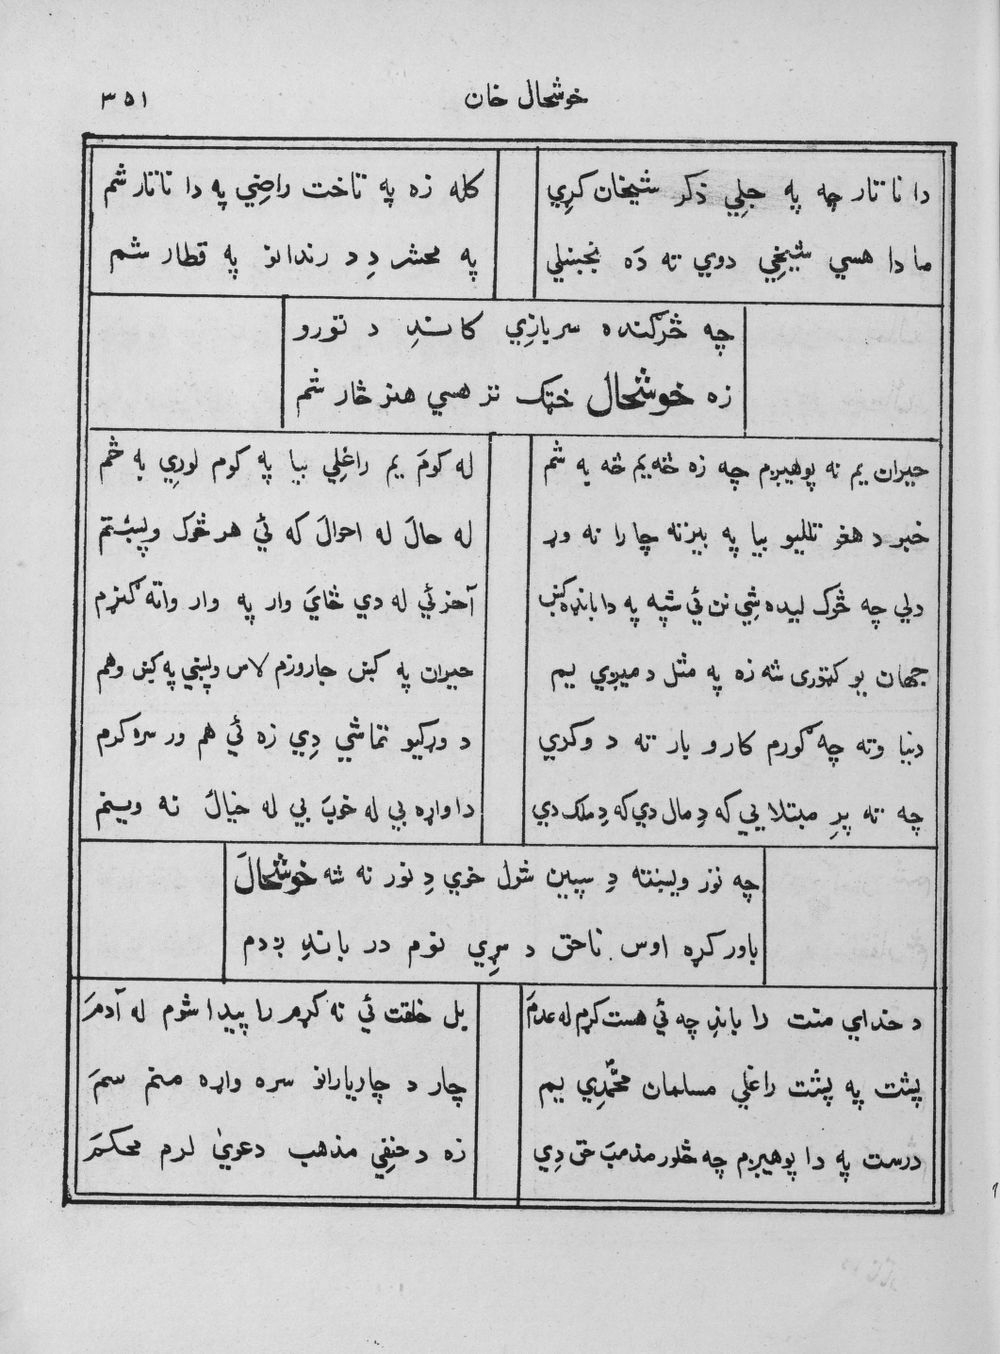 خوشحال خان
۳۵۱
دا ناتار چه په جلي ذکر شیخان کړي
کله زه په تاخت راضي په دا ناتار شم
ما دا هسي شیخي دوي ته ده بخښلي
په محشر دِ د رندانو په قطار شم
چه څرګنده سربازي کاندِ د تورو
زه خوشحال خټک تر هسي هنر څار شم
حیران یم نه پوهیږم چه زه څه یم څه به شم
له کومَ یم راغلي بیا په کوم لورِي به څم
خبر د هغو تللیو بیا په بیرته چا را نه وړ
له حالَ له احوالَ که ئي هر څوک وپښتم
دلي چه څوک لیده شي نن ئي شپه په دا بانډه کښ
آخر ئي له دي ځايَ وار په وار واته ګڼم
جهان یو کټوری شه زه په مثل د میږي یم
حیران په کښ جاروزم لاس وپښي په کښ وهم
دنیا وته چه ګورم کار و بار ته د وکړي
د وړکیو تماشي دِي زه ئي هم ور سره کړم
چه ته پرِ مبتلا یي که دِ مال دي که دِ ملک دي
دا واړه بي له خوبَ بي له خیالَ نه وینم
چه نور ویښته دِ سپین شول خوي دِ نور نه شه خوشحالَ
باور کړه اوس ناحق د سړي نوم در باندِ ږدم
د خداي منت را باندِ چه ئي هست کړم له عدمَ
بل خلقت ئي نه کړم را پیدا شوم له آدمَ
پشت په پشت راغلي مسلمان محمّدِي یم
چار د چاریارانو سره واړه منم سمَ
درست په دا پوهیږم چه څلور مذهبَ حق دِي
زه د حنفِي مذهب دعویٰ لرم محکمَ